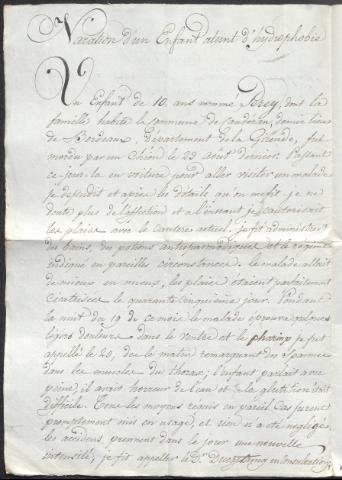 Narration d'un Enfant atteint d'hydrophobie
Un Enfant de 10 ans nommé Serey, dont la
famille habite la commune de Caudéran, demie lieue
de Bordeaux, département de la Gironde, fut
mordu par un Chien le 23 août dernier. Passant
ce jour là en voiture pour aller visiter un malade
je descendis et après les détails qu'on me fit je ne
doute plus de l'affection et a l'instant je cautérisai
les plaies avec le cautère actuel. je fis administrer
des bains, des potions antispasmodiques et le régime
indiqué en pareilles circonstances. le malade allait
de mieux en mieux, les plaies étaient parfaitement
cicatrisées le quarante cinquième jour. Pendant
la nuit du 19 de ce mois le malade éprouva quelques
légères douleurs dans le ventre et le pharinx je fut
appellé le 20, dès le matin remarquant des spasmes
dans les muscles du thorax; l'enfant parlait avec
peine, il avait horreur de l'eau et la glutition était
difficile. Tous les moyens requis en pareil Cas furent
promptement mis en usage, et rien n'a été négligé,
les accidens prennent dans le jour une nouvelle
intensité; je fis appeller le Dr en consultation